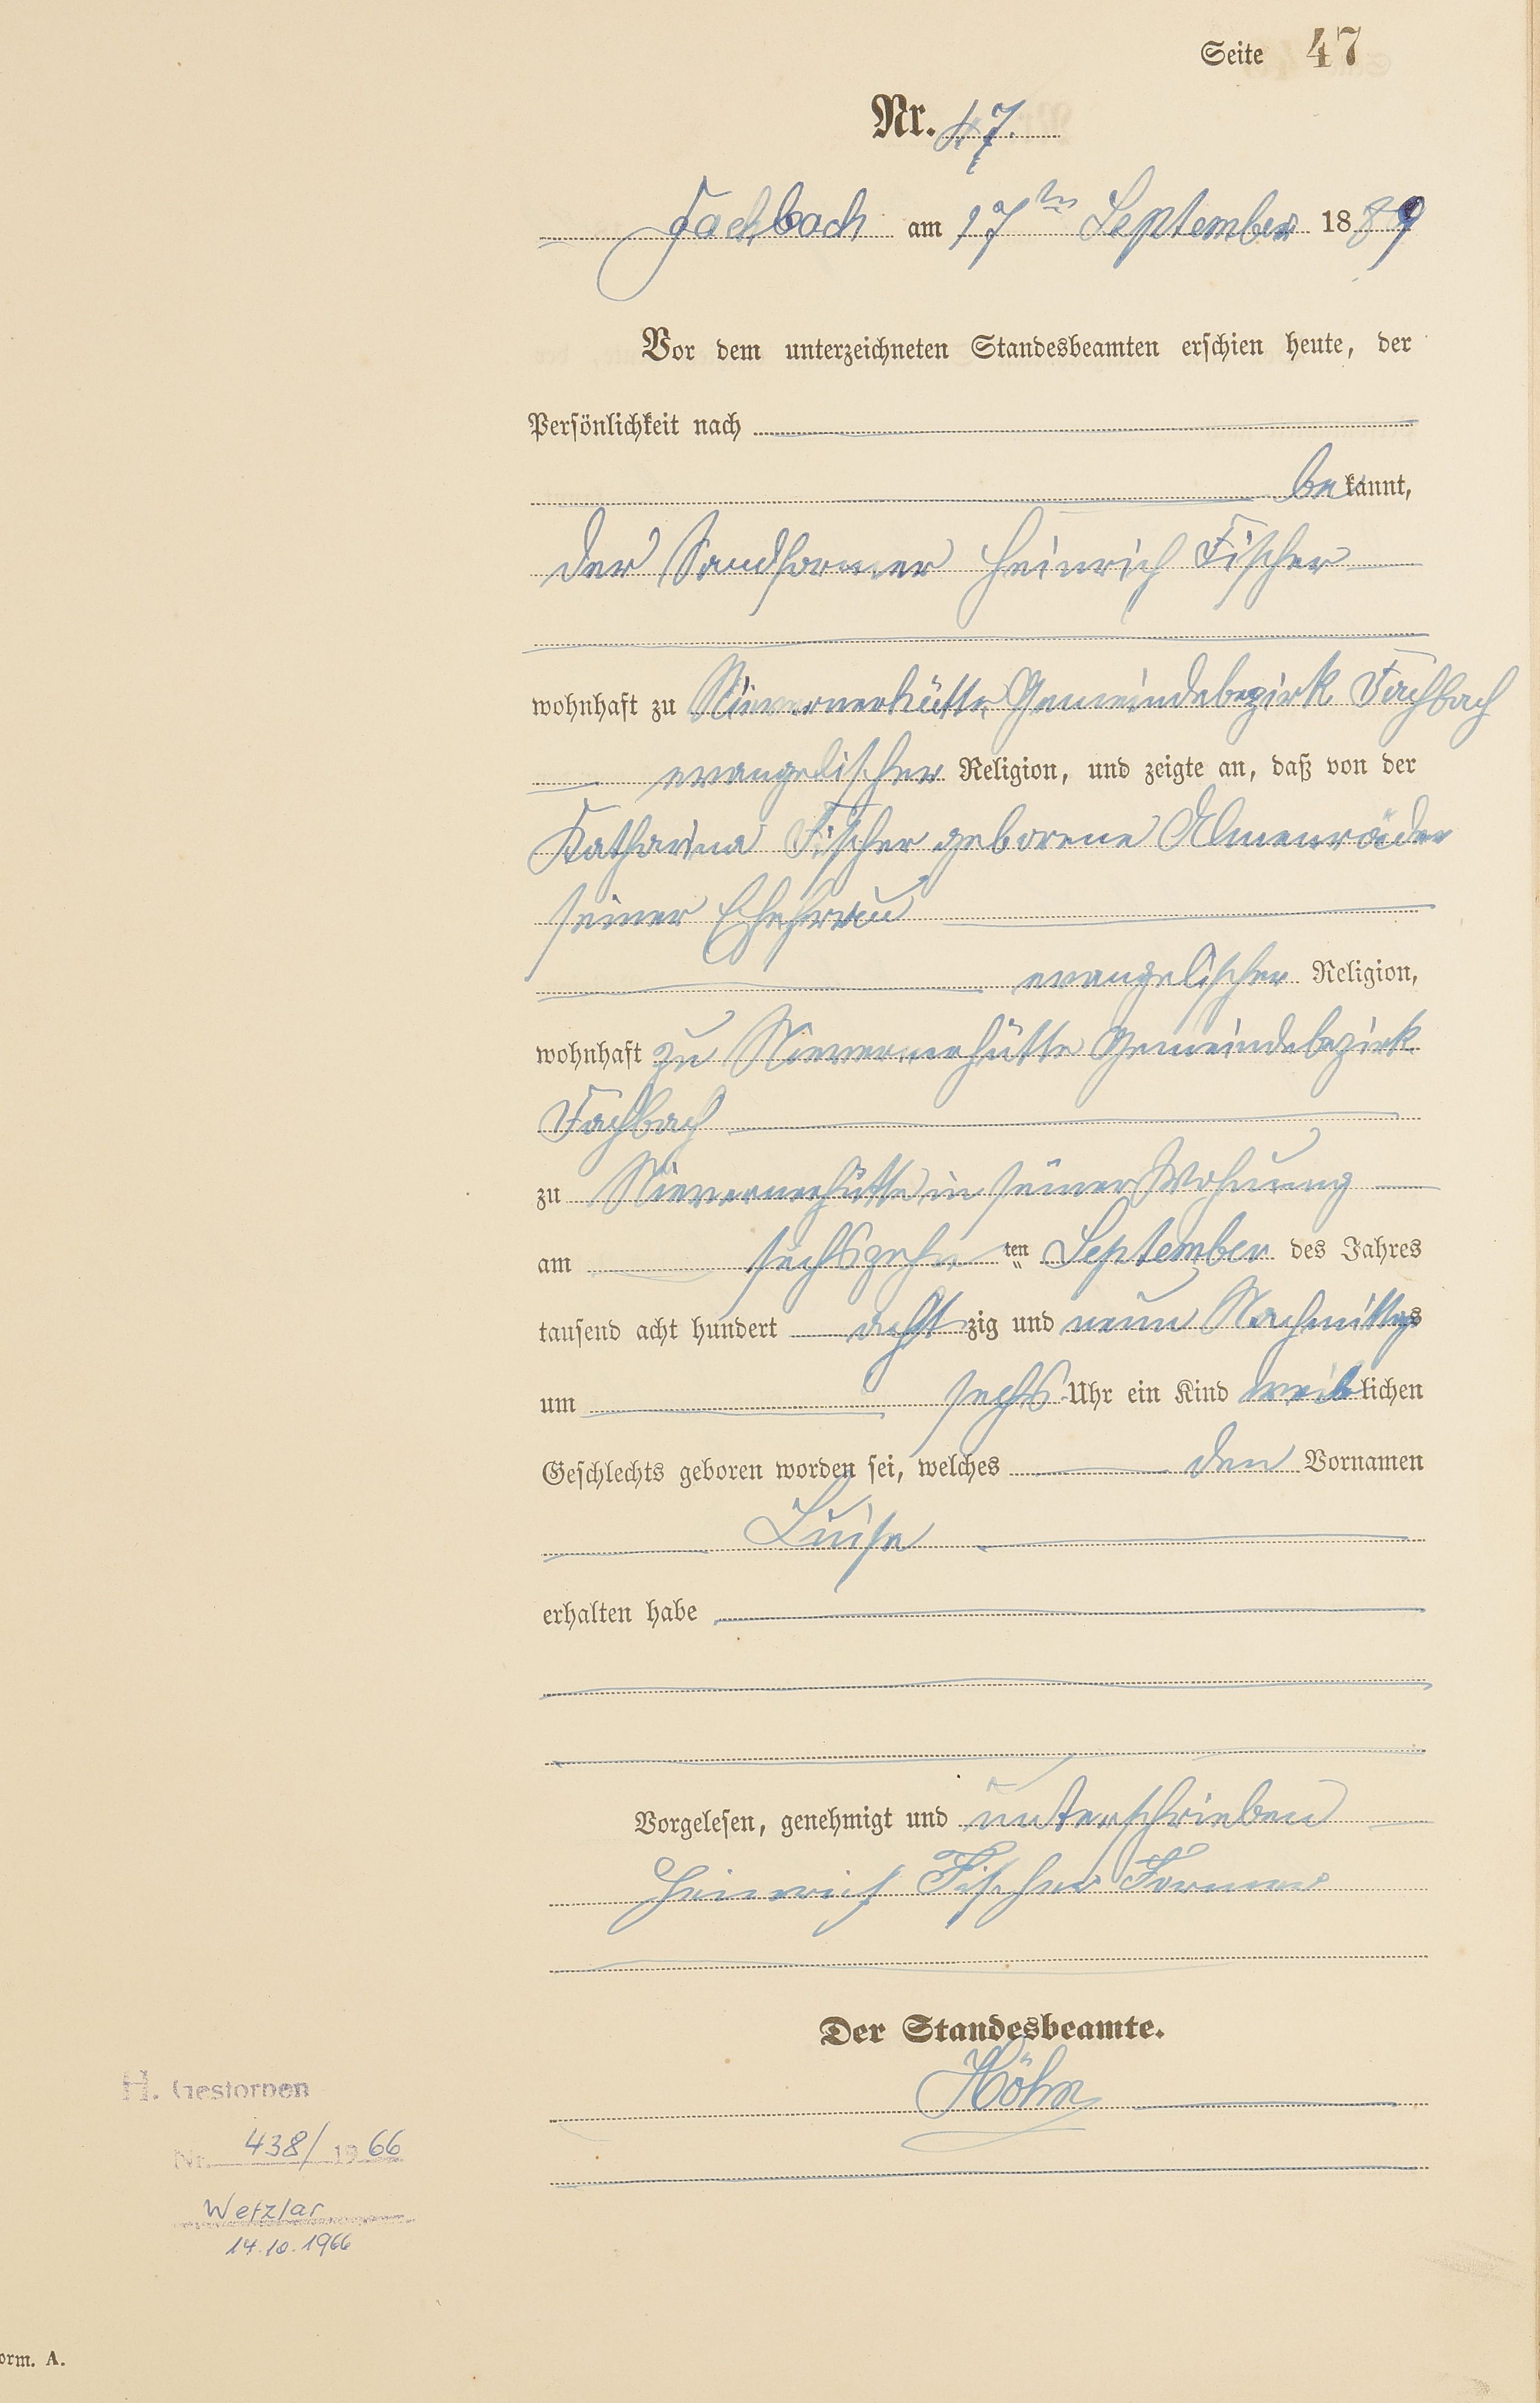 Seite 47
Nr. 47.
Fachbach am 17ten September 1889
Vor dem unterzeichneten Standesbeamten erschien heute, der
Persönlichkeit nach
bekannt,
der Sandformer Heinrich Fischer
wohnhaft zu Nievernerhütte Gemeindebezirk Fachbach
evangelischer Religion, und zeigte an, daß von der
Katharina Fischer geborene Elmenröder
seiner Ehefrau
evangelischer Religion,
wohnhaft zu Nievernerhütte Gemeindebezirk
Fachbach
zu Nievernerhütte in seiner Wohnung
am sechszehnten September des Jahres
tausend acht hundert achtzig und neun Nachmittags
um sechs Uhr ein Kind weiblichen
Geschlechts geboren worden sei, welches den Vornamen
Luise
erhalten habe
Vorgelesen, genehmigt und unterschrieben
Heinrich Fischer Former
Der Standesbeamte.
Höhn
H. Gestorben
Nr. 438/1966
Wetzlar
14.10.1966
orm. A.